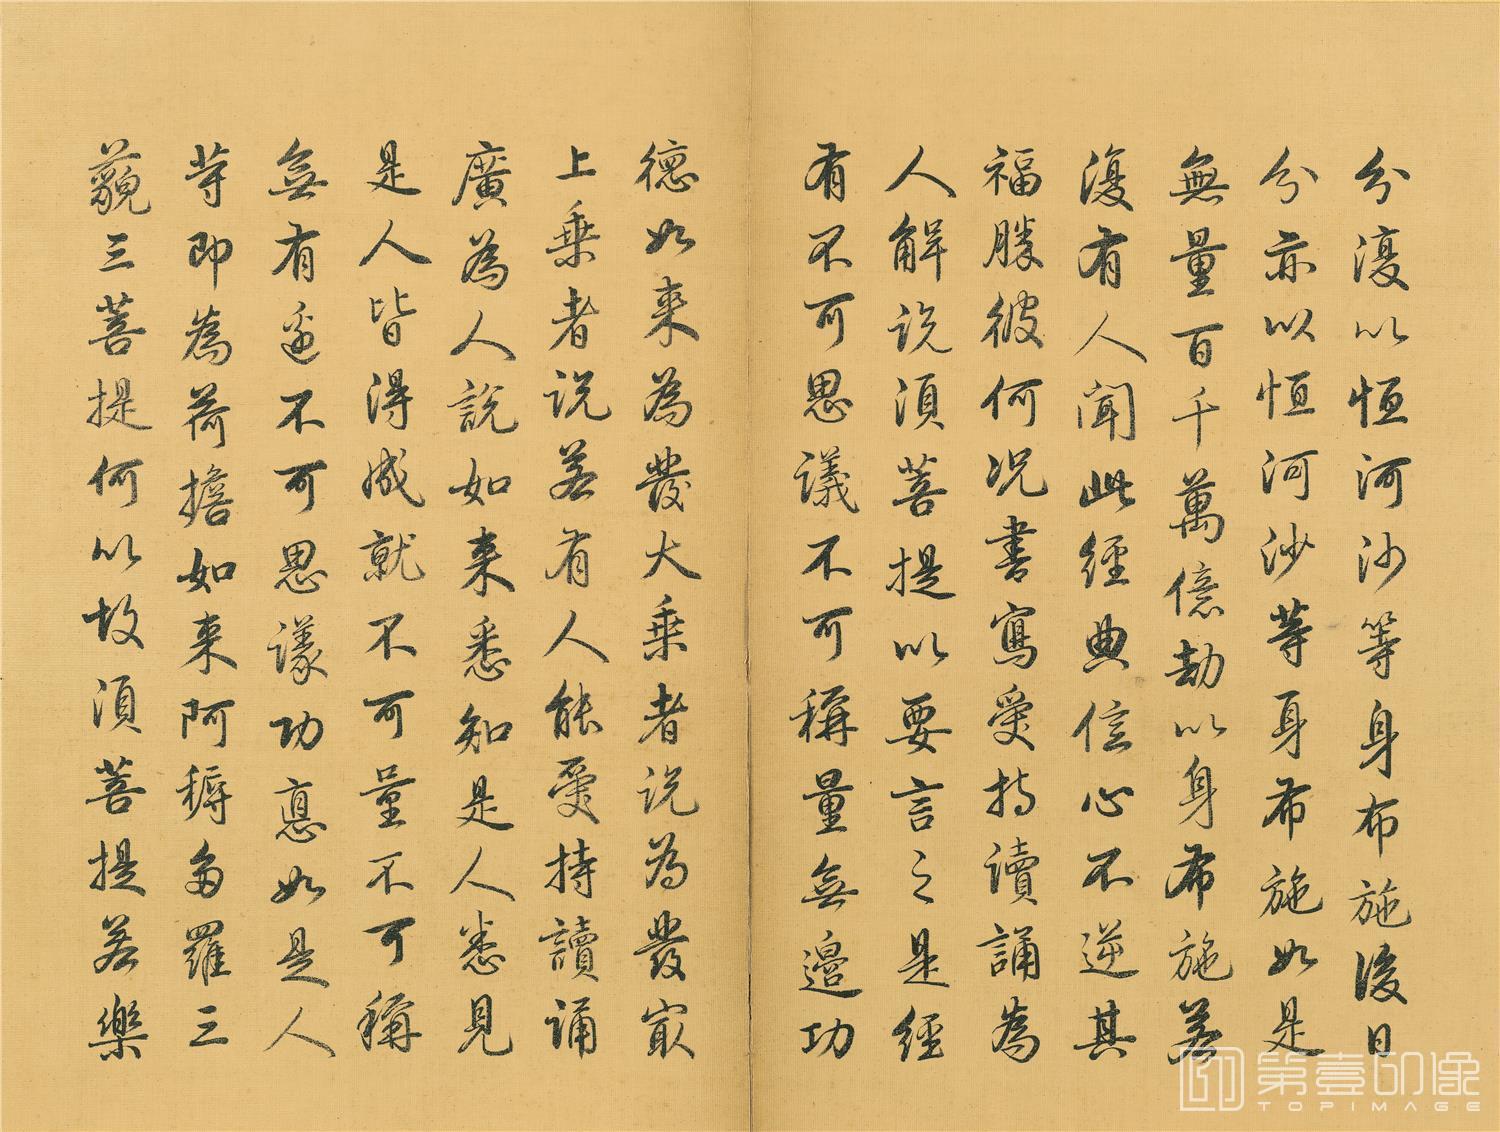 分復以恒河沙等身布施後日
分亦以恒河沙等身布施如是
無量百千萬億劫以身布施若
復有人聞此經典信心不逆其
福勝彼何況書寫受持讀誦為
人解說須菩提以要言之是經
有不可思議不可稱量無邊功
德如來為發大乘者說為發最
上乘者說若有人能受持讀誦
廣為人說如來悉知是人悉見
是人皆得成就不可量不可稱
無有邊不可思議功德如是人
等即為荷擔如來阿耨多羅三
藐三菩提何以故須菩提若樂
第壹印像
TOPIMAGE